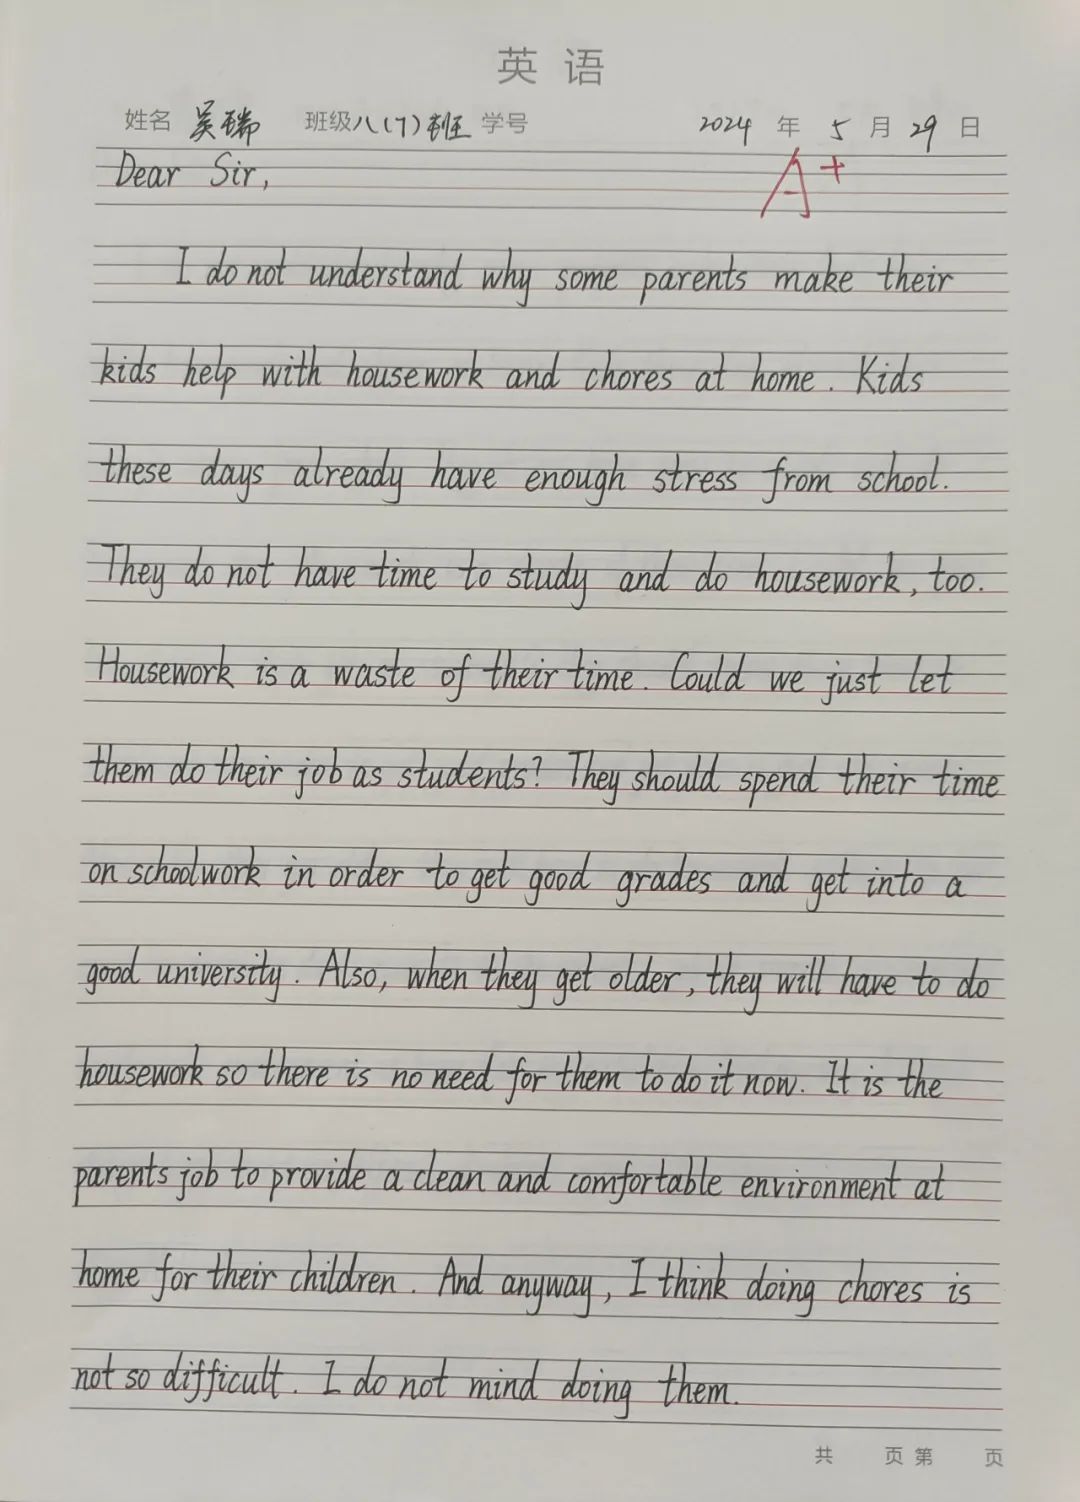 英语
姓名 吴瑞 班级八(7)班 学号 2024 年 5 月 29 日
Dear Sir,
A+
I do not understand why some parents make their
kids help with housework and chores at home. Kids
these days already have enough stress from school.
They do not have time to study and do housework, too.
Housework is a waste of their time. Could we just let
them do their job as students? They should spend their time
on schoolwork in order to get good grades and get into a
good university. Also, when they get older, they will have to do
housework so there is no need for them to do it now. It is the
parents job to provide a clean and comfortable environment at
home for their children. And anyway, I think doing chores is
not so difficult. I do not mind doing them.
共 页 第 页